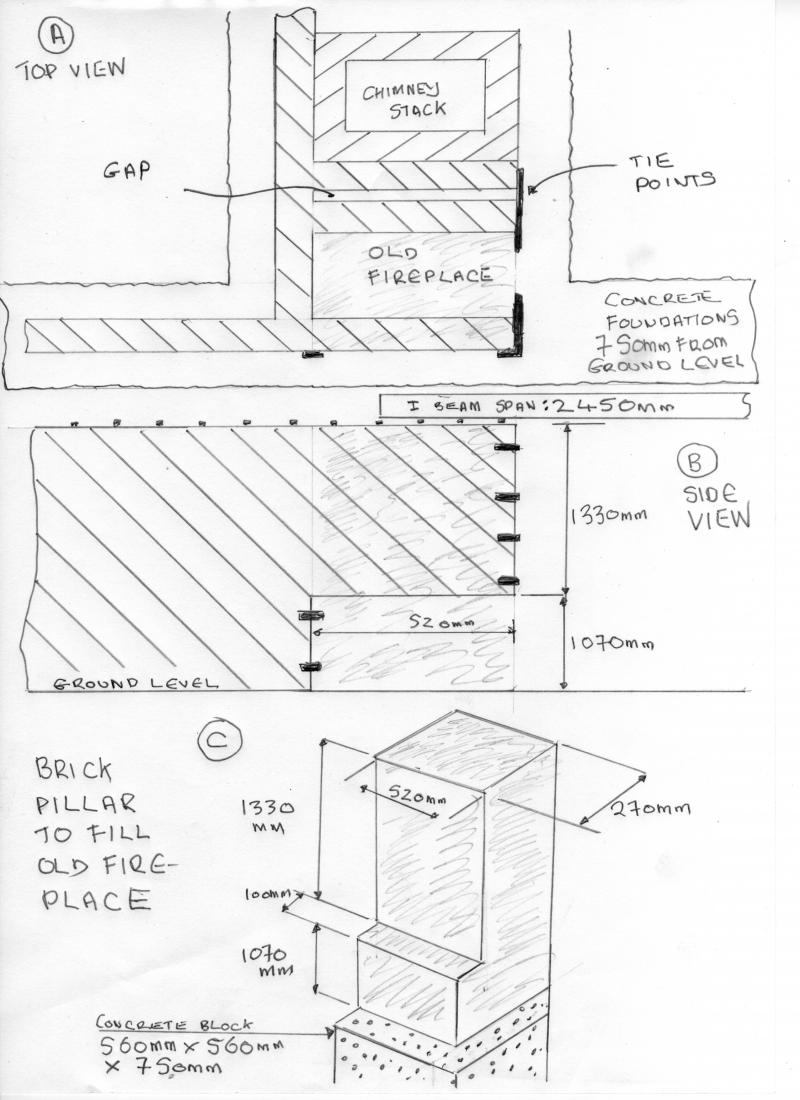 A
TOP VIEW
CHIMNEY
STACK
GAP
TIE
POINTS
OLD
FIREPLACE
CONCRETE
FOUNDATIONS
750mm FROM
GROUND LEVEL
I BEAM SPAN: 2450mm
B
SIDE
VIEW
1330mm
520mm
1070mm
GROUND LEVEL
C
BRICK
PILLAR
TO FILL
OLD FIRE-
PLACE
520mm
270mm
1330
mm
100mm
1070
mm
CONCRETE BLOCK
560mm x 560mm
x 750mm